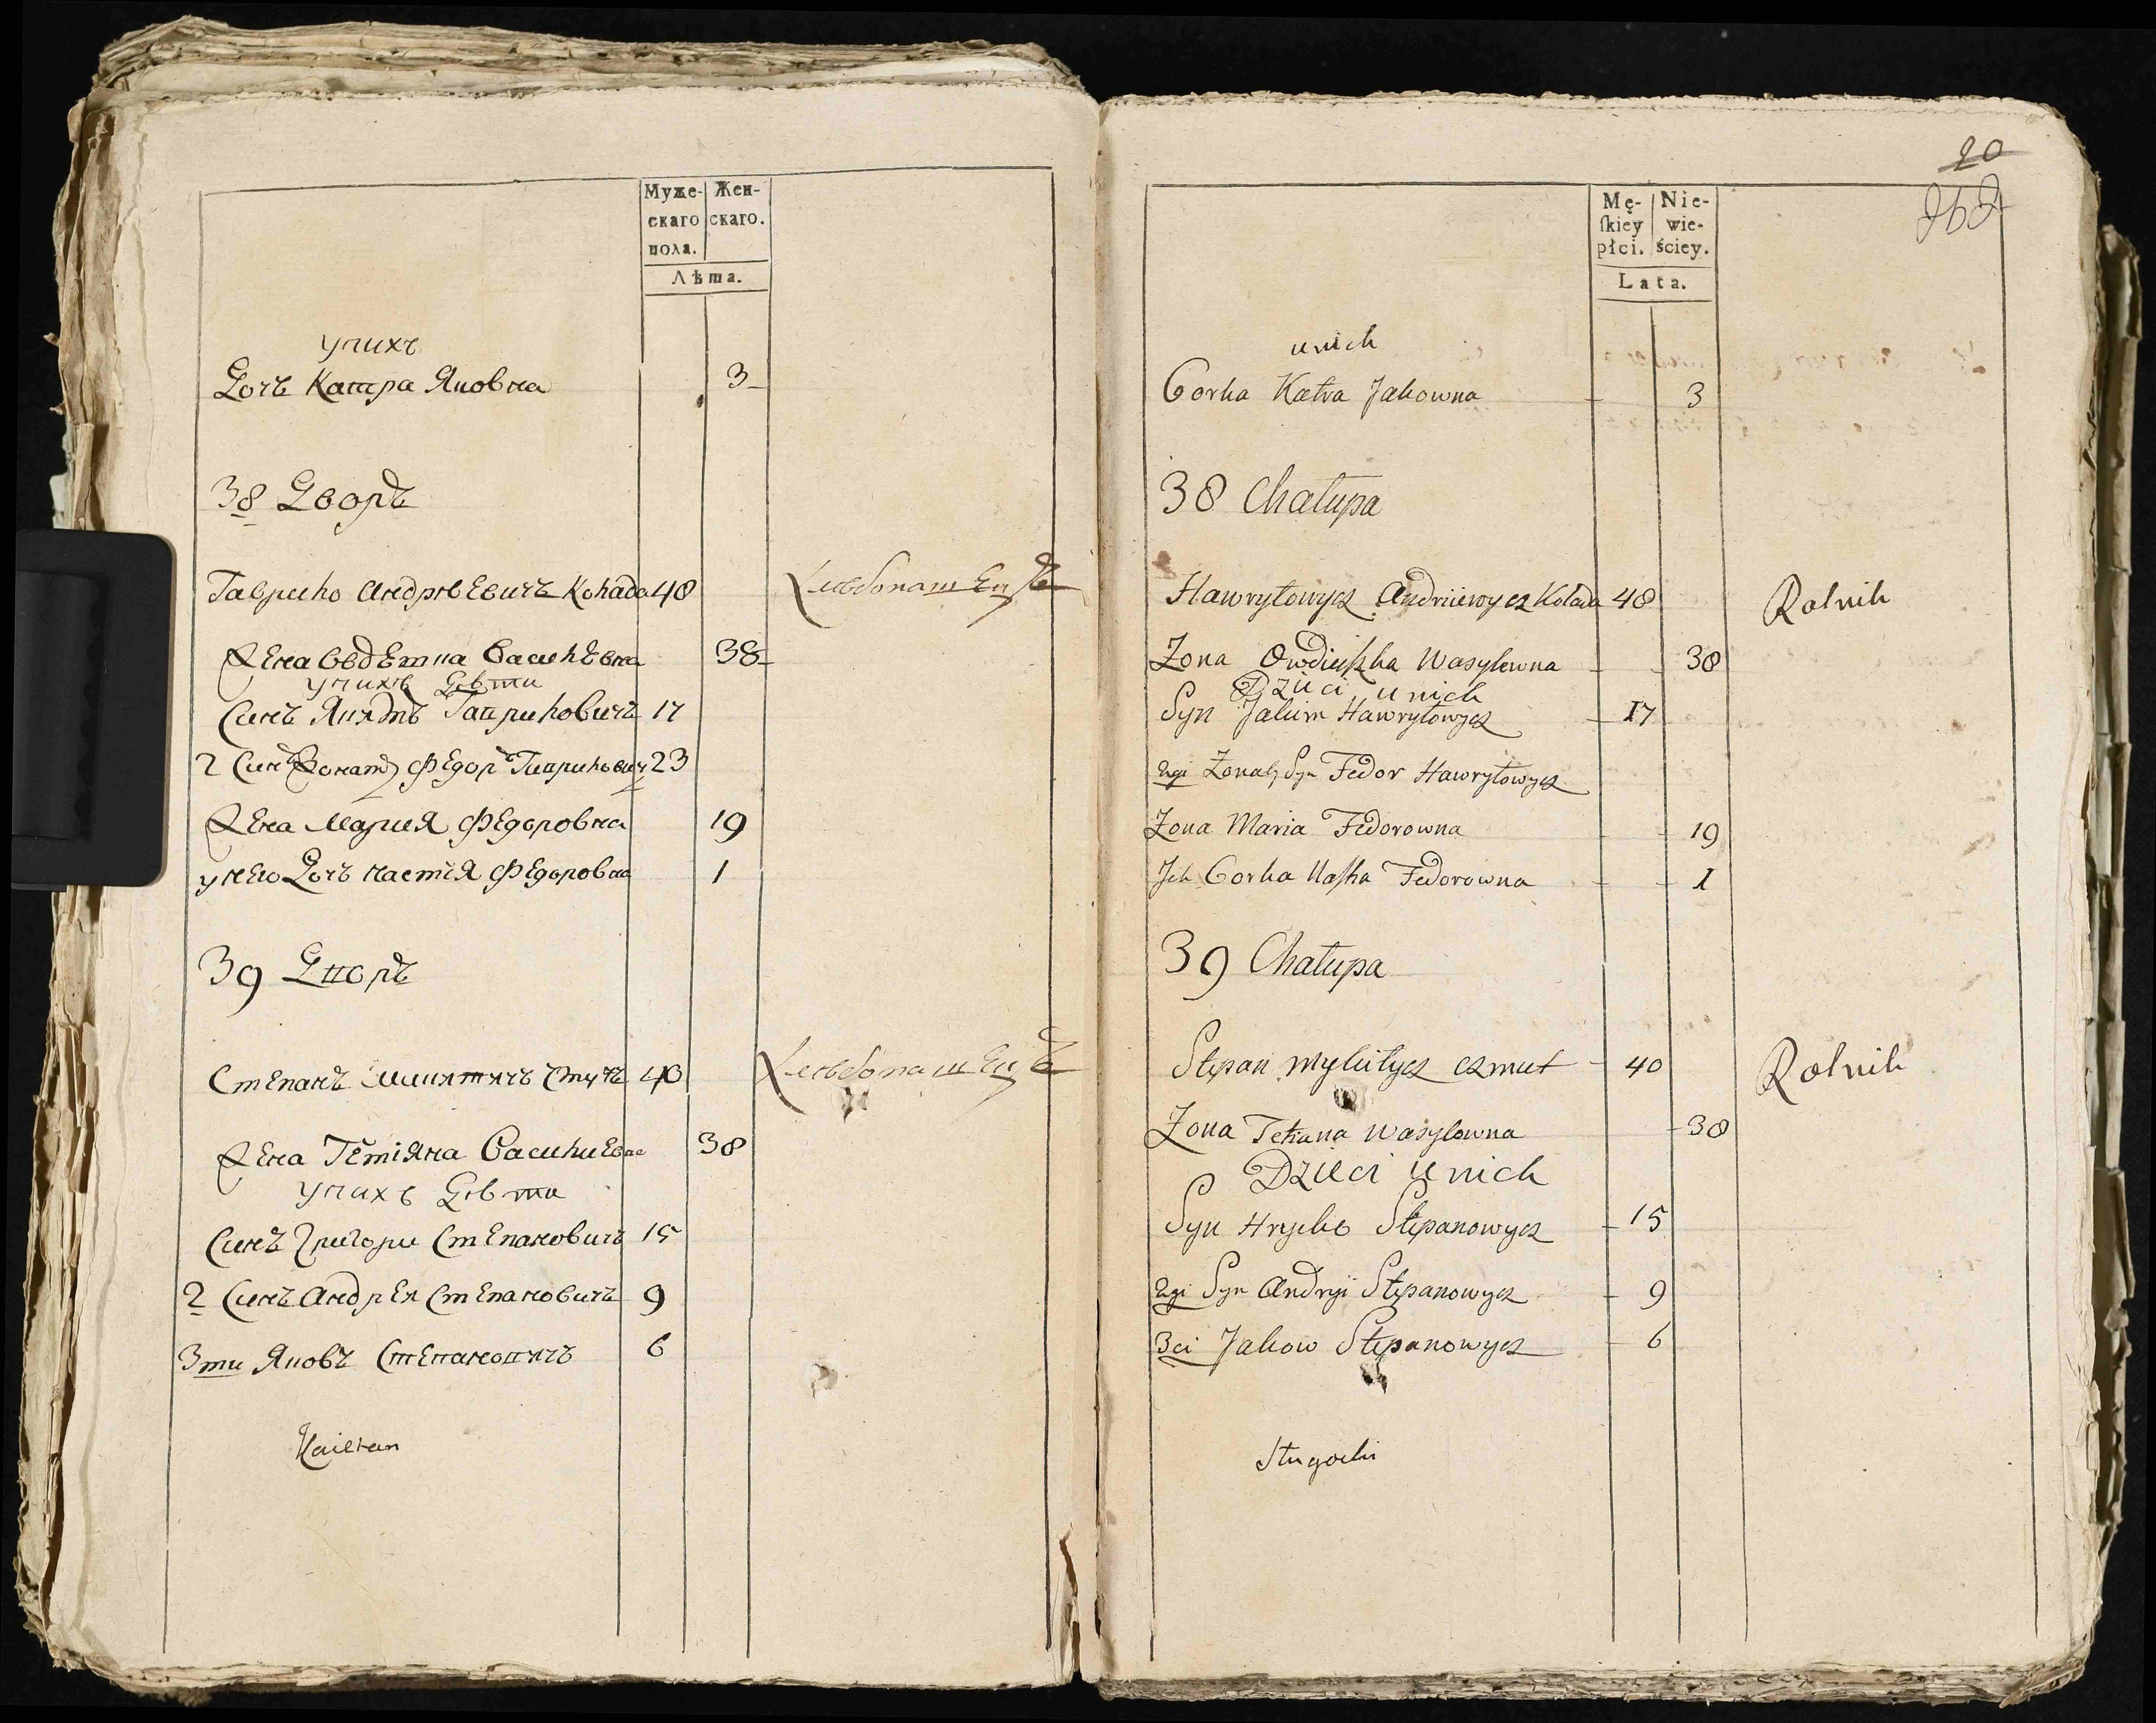 Муже-
скаго
пола.
Жен-
скаго.
Лѣта.
унихъ
Дочь Катра Яковна 3
38 Дворъ
Гаврило Андрѣевичъ Колада 48 Хлѣбопашецъ
Жена Овдетка Василевна 38
унихъ Дѣти
Синъ Якимъ Гаврилович 17
2 Синъ Жонатъ Федоръ Гаврилович 23
Жена Мария Федоровна 19
унею Дочь настия Федоровна 1
39 Дворъ
Степанъ Микитичъ 40 Хлѣбопашецъ
Жена Тетiяна Василиевна 38
унихъ Дѣти
Синъ Григори Степановичъ 15
2 Синъ Андрей Степановичъ 9
3ти Яковъ Степановичъ 6
20
Mę-
ſkiey
płci.
Nie-
wie-
ściey.
Lata.
unich
Corka Katra Jakowna 3
38 Chałupa
Hawryłowycz Andriiewycz Kolada 48 Rolnik
Zona Owdiuszka Wasylewna 38
Dzieci unich
Syn Jakim Hawryłowycz 17
2gi Zonaty Syn Fedor Hawryłowycz
Zona Maria Fedorowna 19
Ich Corka Naſtia Fedorowna 1
39 Chałupa
Stepan Mykitycz czmut 40 Rolnik
Zona Tetiana Wasylowna 38
Dzieci unich
Syn Hryćko Stepanowycz 15
2gi Syn Andryi Stepanowycz 9
3ci Jakow Stepanowycz 6